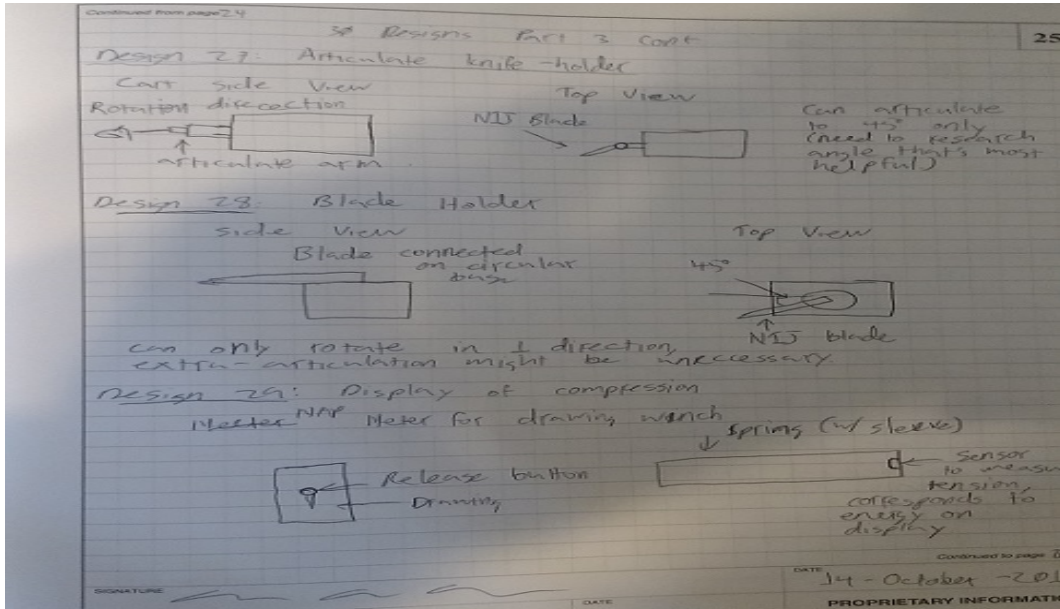 Continued from page 24
Designs Part 3 Cont
25
Design 27: Articulate knife-holder
Cart side View
Top View
Rotation direcaction
NIJ Blade
articulate arm
Can articulate
to 45° only
(need to research
angle that's most
helpful)
Design 28: Blade Holder
side View
Top View
Blade connected
on circular
base
45°
NIJ blade
can only rotate in 1 direction,
extra-articulation might be unneccessary
Design 29: Display of compression
Meter for drawing winch
Spring (w/ sleeve)
Release button
Drawing
Sensor
to measu
tension,
corresponds to
energy on
display
Continued to page
SIGNATURE
DATE
DATE
14-October-201
PROPRIETARY INFORMATI